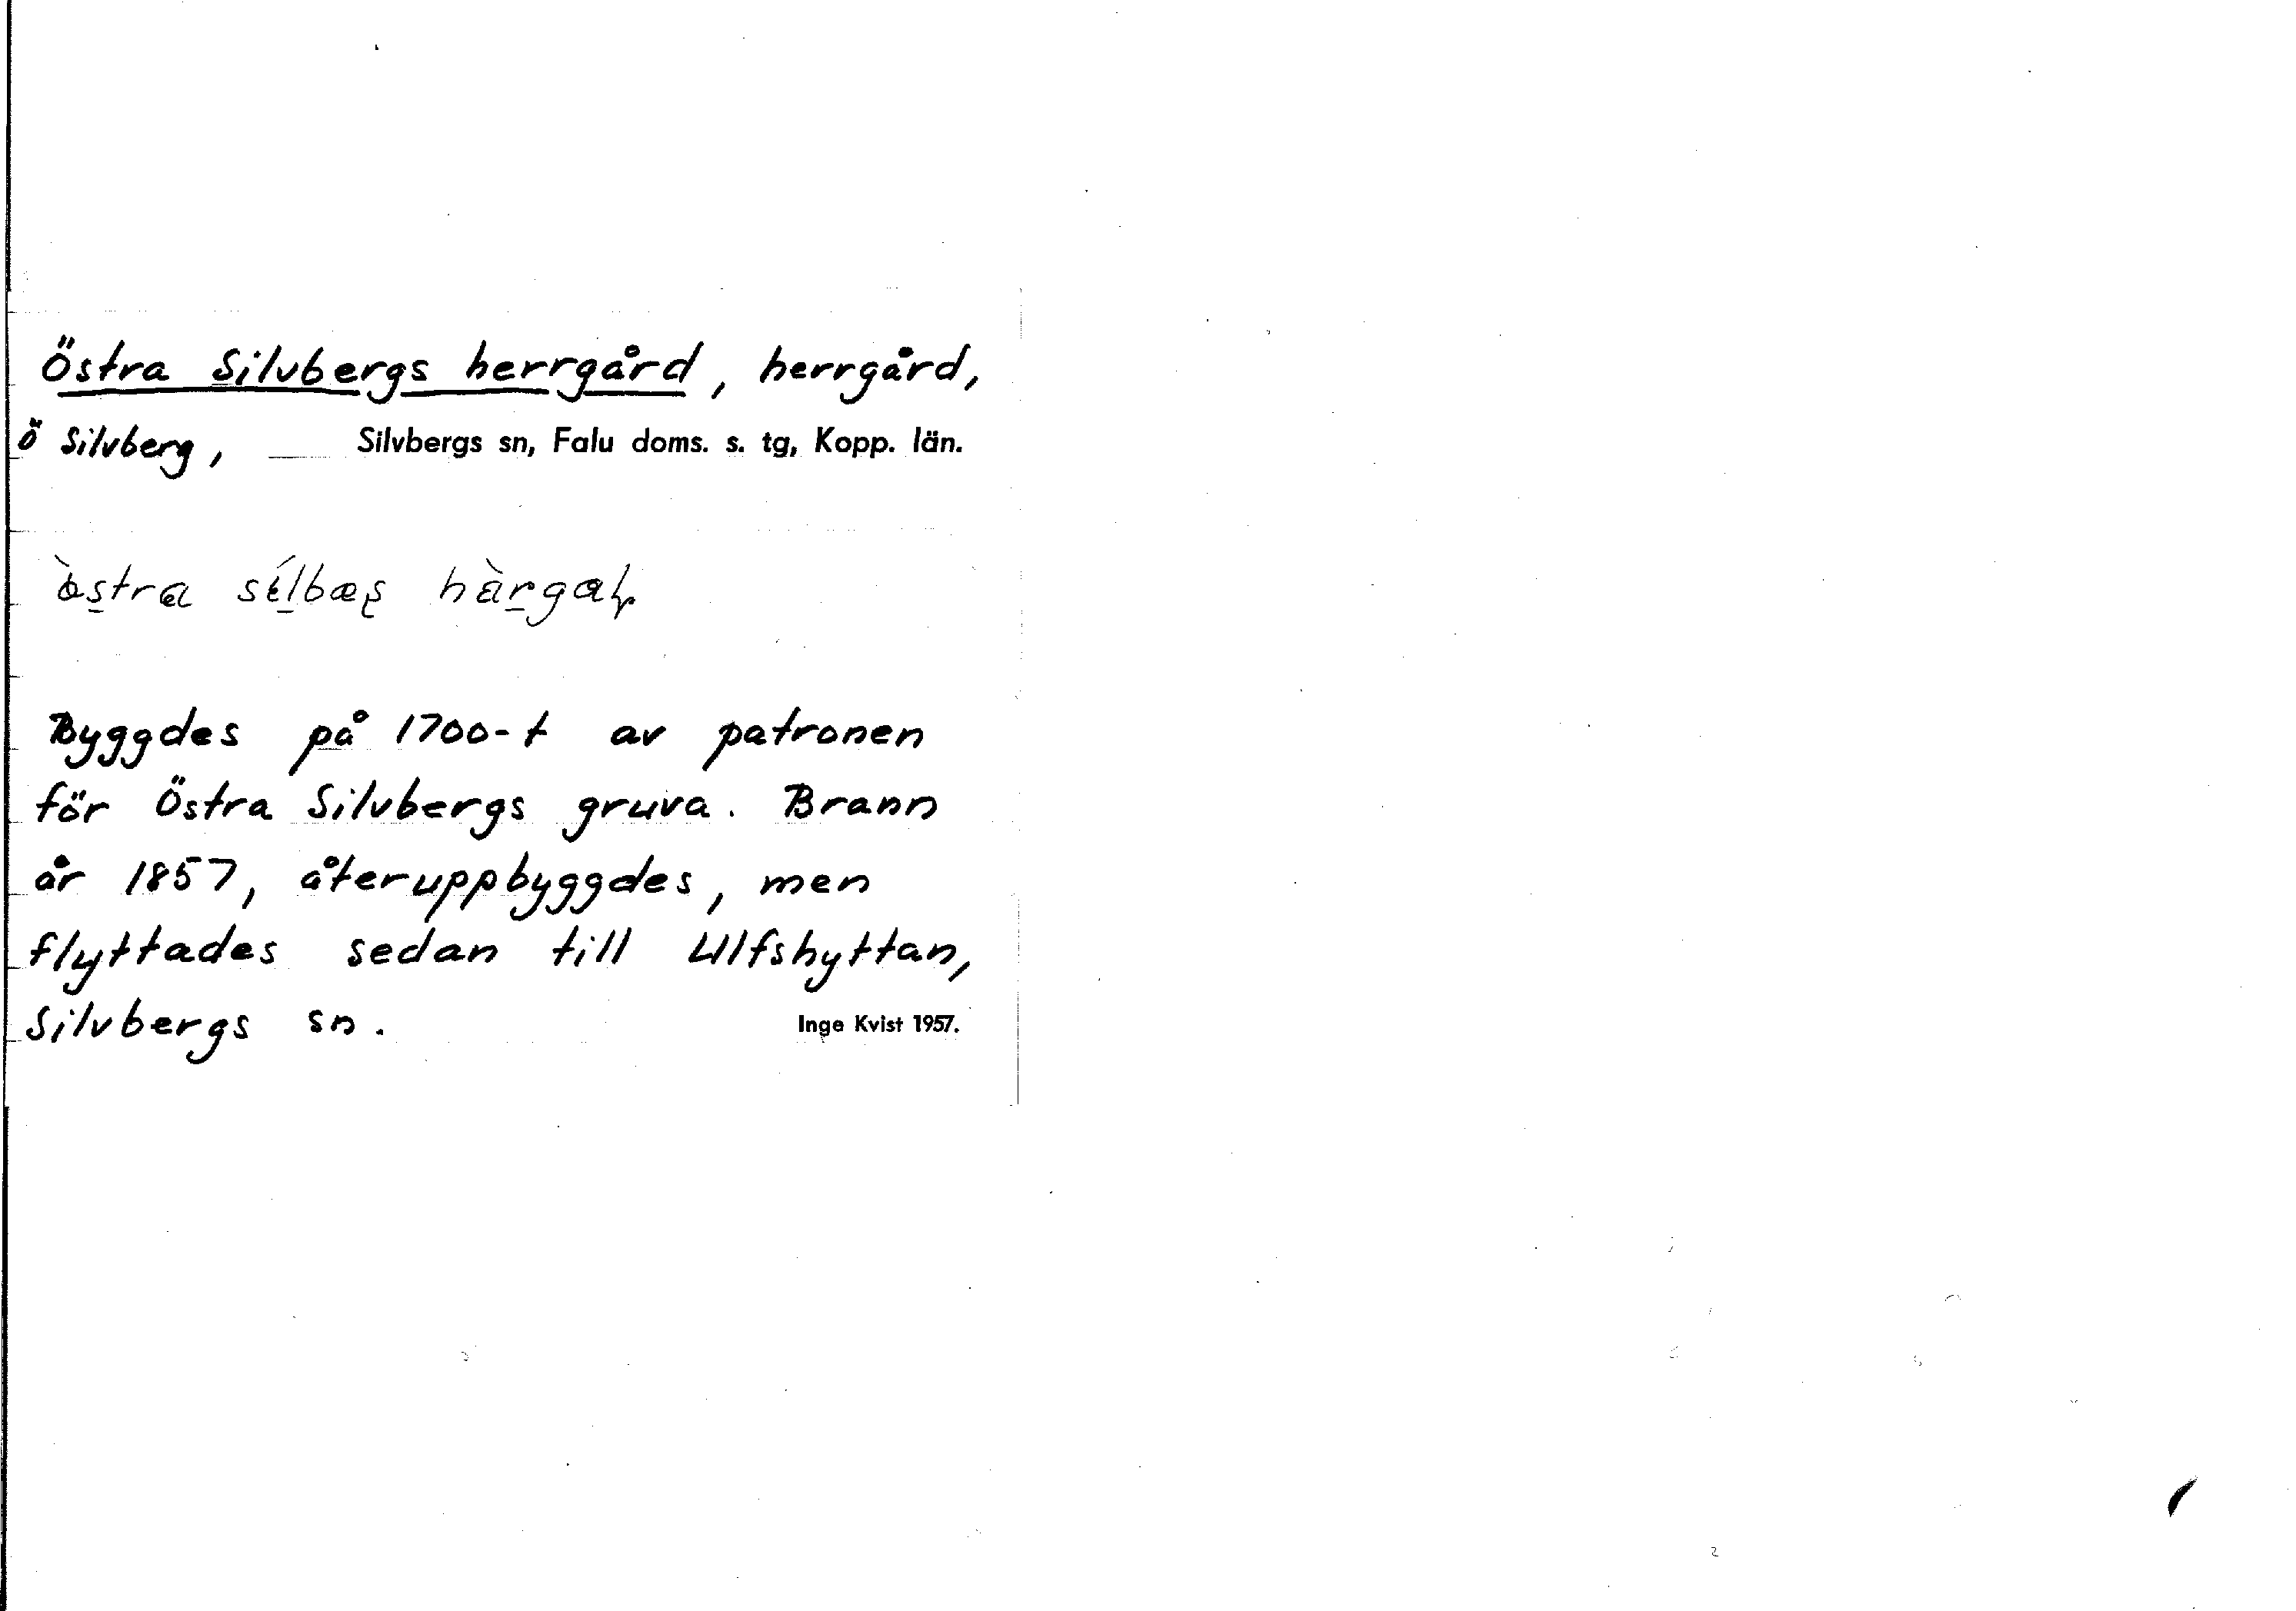 Östra Silvbergs herrgård, herrgård,
Ö Silvberg, Silvbergs sn, Falu doms. s. tg, Kopp. län.
Byggdes på 1700-t av patronen
för Östra Silvbergs gruva. Brann
år 1857, återuppbyggdes, men
flyttades sedan till Ulfshyttan,
Silvbergs sn. Inge Kvist 1957.